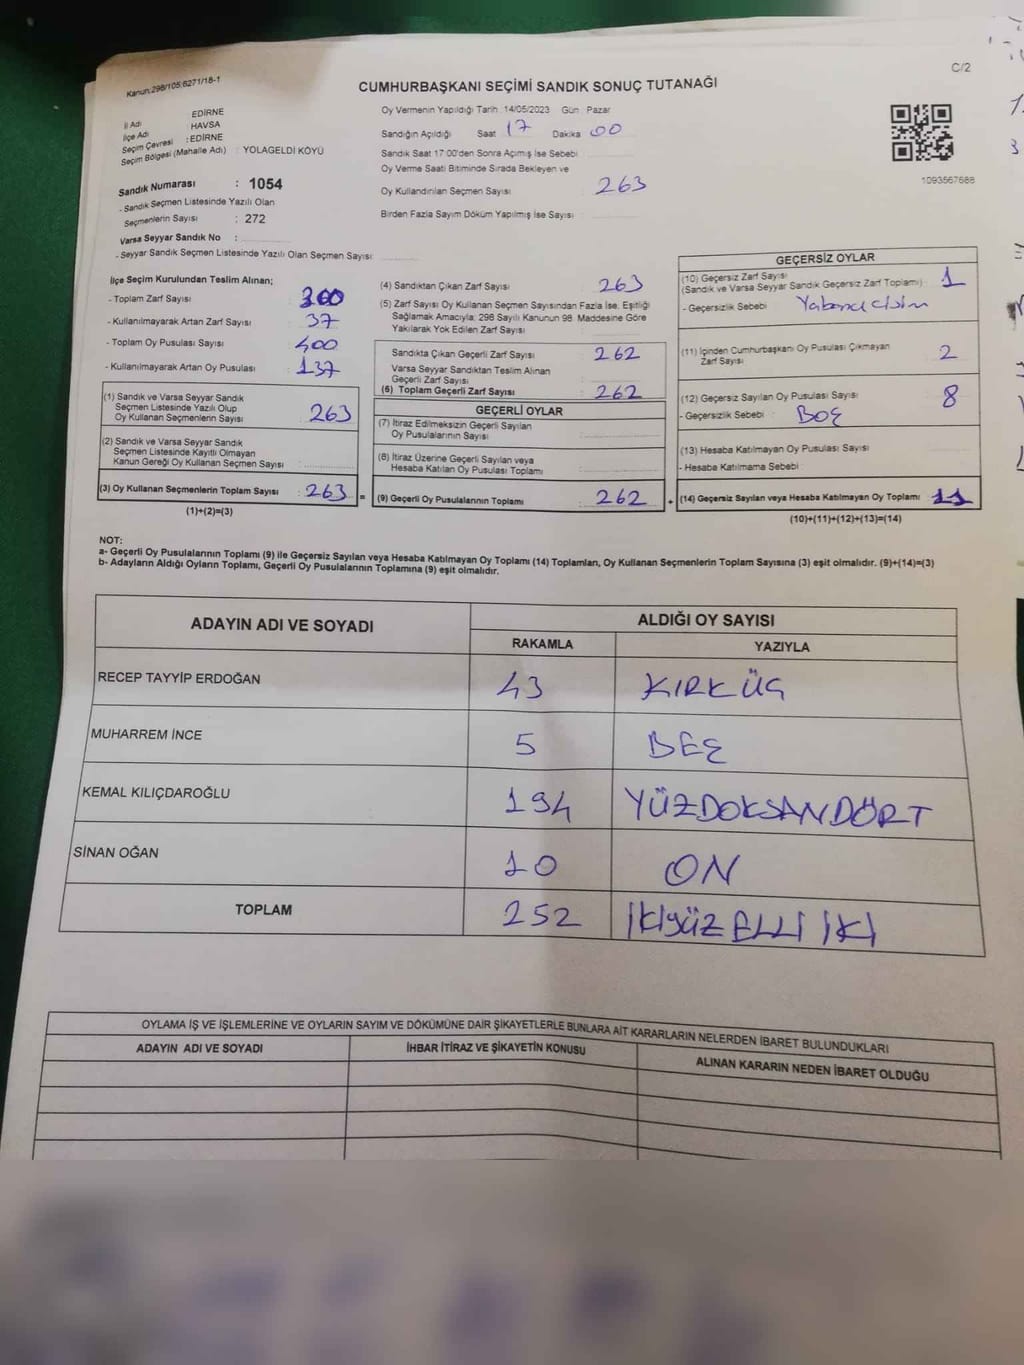 Kanun:298/105;6271/18-1
C/2
CUMHURBAŞKANI SEÇİMİ SANDIK SONUÇ TUTANAĞI
İl Adı EDİRNE
İlçe Adı HAVSA
Seçim Çevresi : EDİRNE
Seçim Bölgesi (Mahalle Adı) : YOLAGELDİ KÖYÜ
Sandık Numarası : 1054
- Sandık Seçmen Listesinde Yazılı Olan
Seçmenlerin Sayısı : 272
Varsa Seyyar Sandık No :
- Seyyar Sandık Seçmen Listesinde Yazılı Olan Seçmen Sayısı:
Oy Vermenin Yapıldığı Tarih : 14/05/2023 Gün : Pazar
Sandığın Açıldığı Saat 17 Dakika 00
Sandık Saat 17:00'den Sonra Açımış İse Sebebi
Oy Verme Saati Bitiminde Sırada Bekleyen ve
Oy Kullandırılan Seçmen Sayısı : 263
Birden Fazla Sayım Döküm Yapılmış İse Sayısı :
1093567688
İlçe Seçim Kurulundan Teslim Alınan;
- Toplam Zarf Sayısı : 300
- Kullanılmayarak Artan Zarf Sayısı : 37
- Toplam Oy Pusulası Sayısı : 400
- Kullanılmayarak Artan Oy Pusulası : 137
(1) Sandık ve Varsa Seyyar Sandık
Seçmen Listesinde Yazılı Olup
Oy Kullanan Seçmenlerin Sayısı : 263
(2) Sandık ve Varsa Seyyar Sandık
Seçmen Listesinde Kayıtlı Olmayan
Kanun Gereği Oy Kullanan Seçmen Sayısı :
(3) Oy Kullanan Seçmenlerin Toplam Sayısı : 263 =
(1)+(2)=(3)
(4) Sandıktan Çıkan Zarf Sayısı : 263
(5) Zarf Sayısı Oy Kullanan Seçmen Sayısından Fazla İse, Eşitliği
Sağlamak Amacıyla, 298 Sayılı Kanunun 98. Maddesine Göre
Yakılarak Yok Edilen Zarf Sayısı :
Sandıkta Çıkan Geçerli Zarf Sayısı : 262
Varsa Seyyar Sandıktan Teslim Alınan
Geçerli Zarf Sayısı :
(6) Toplam Geçerli Zarf Sayısı : 262
GEÇERLİ OYLAR
(7) İtiraz Edilmeksizin Geçerli Sayılan
Oy Pusulalarının Sayısı :
(8) İtiraz Üzerine Geçerli Sayılan veya
Hesaba Katılan Oy Pusulası Toplamı :
(9) Geçerli Oy Pusulalarının Toplamı : 262 +
GEÇERSİZ OYLAR
(10) Geçersiz Zarf Sayısı : 1
(Sandık ve Varsa Seyyar Sandık Geçersiz Zarf Toplamı)
- Geçersizlik Sebebi : Yabancı isim
(11) İçinden Cumhurbaşkanı Oy Pusulası Çıkmayan
Zarf Sayısı : 2
(12) Geçersiz Sayılan Oy Pusulası Sayısı : 8
- Geçersizlik Sebebi : BOŞ
(13) Hesaba Katılmayan Oy Pusulası Sayısı
- Hesaba Katılmama Sebebi :
(14) Geçersiz Sayılan veya Hesaba Katılmayan Oy Toplamı : 11
(10)+(11)+(12)+(13)=(14)
NOT:
a- Geçerli Oy Pusulalarının Toplamı (9) ile Geçersiz Sayılan veya Hesaba Katılmayan Oy Toplamı (14) Toplamları, Oy Kullanan Seçmenlerin Toplam Sayısına (3) eşit olmalıdır. (9)+(14)=(3)
b- Adayların Aldığı Oyların Toplamı, Geçerli Oy Pusulalarının Toplamına (9) eşit olmalıdır.
ADAYIN ADI VE SOYADI
ALDIĞI OY SAYISI
RAKAMLA YAZIYLA
RECEP TAYYİP ERDOĞAN 43 KIRKÜÇ
MUHARREM İNCE 5 BEŞ
KEMAL KILIÇDAROĞLU 194 YÜZDOKSANDÖRT
SİNAN OĞAN 10 ON
TOPLAM 252 İKİYÜZ ELLİ İKİ
OYLAMA İŞ VE İŞLEMLERİNE VE OYLARIN SAYIM VE DÖKÜMÜNE DAİR ŞİKAYETLERLE BUNLARA AİT KARARLARIN NELERDEN İBARET BULUNDUKLARI
ADAYIN ADI VE SOYADI İHBAR İTİRAZ VE ŞİKAYETİN KONUSU ALINAN KARARIN NEDEN İBARET OLDUĞU